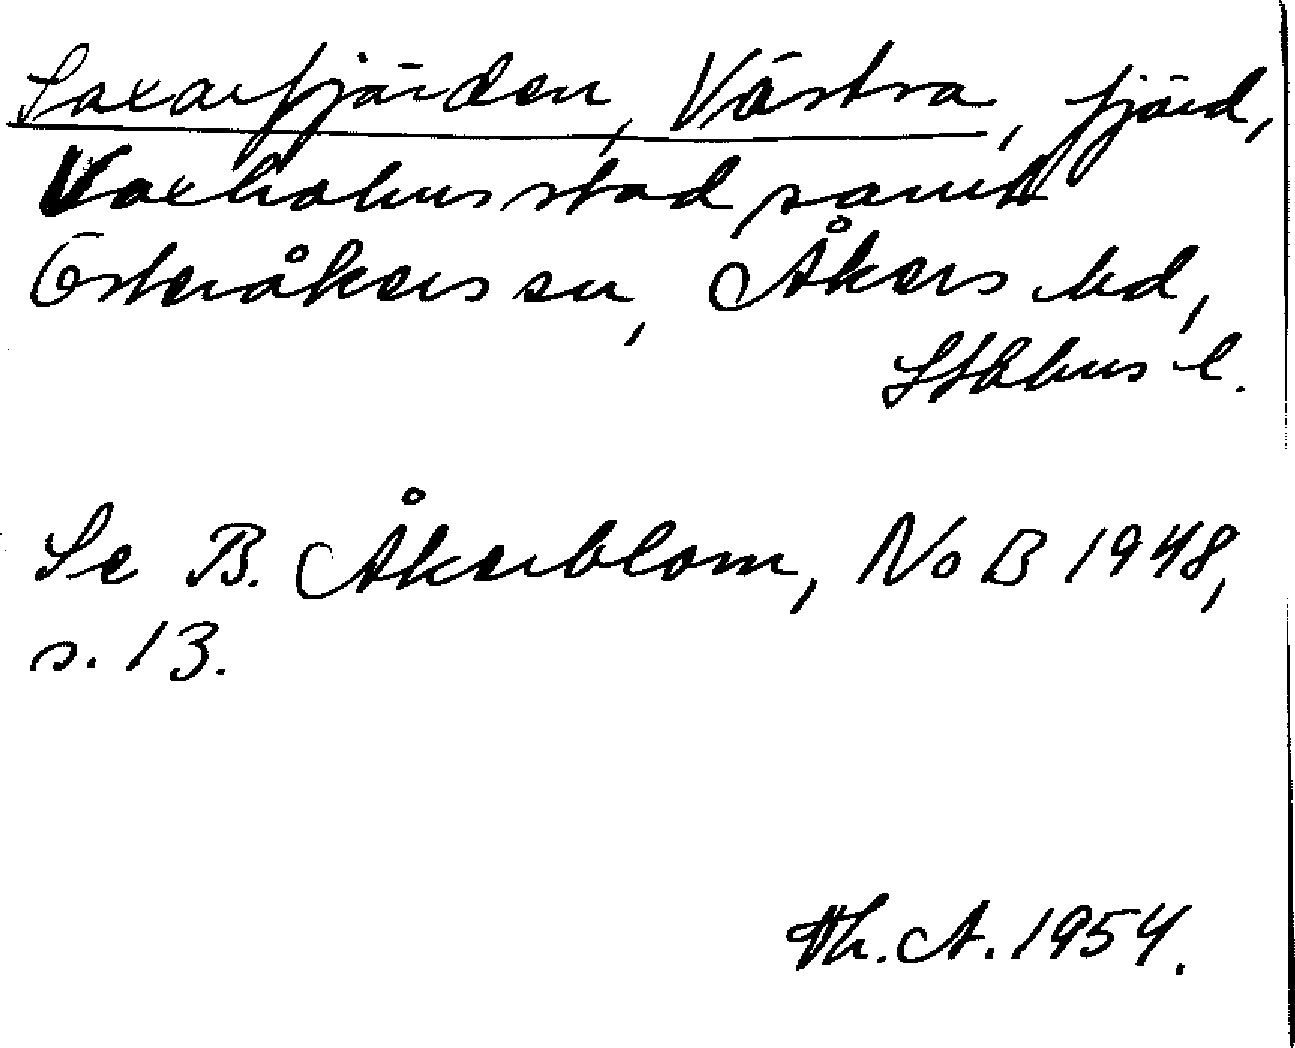 Saxarfjärden, Västra, fjärd,
Vaxholms stad samt
Österåkers sn, Åkers skd,
Sthlms l.
Se B. Åkerblom, NoB 1948,
s. 13.
Th. A. 1954.